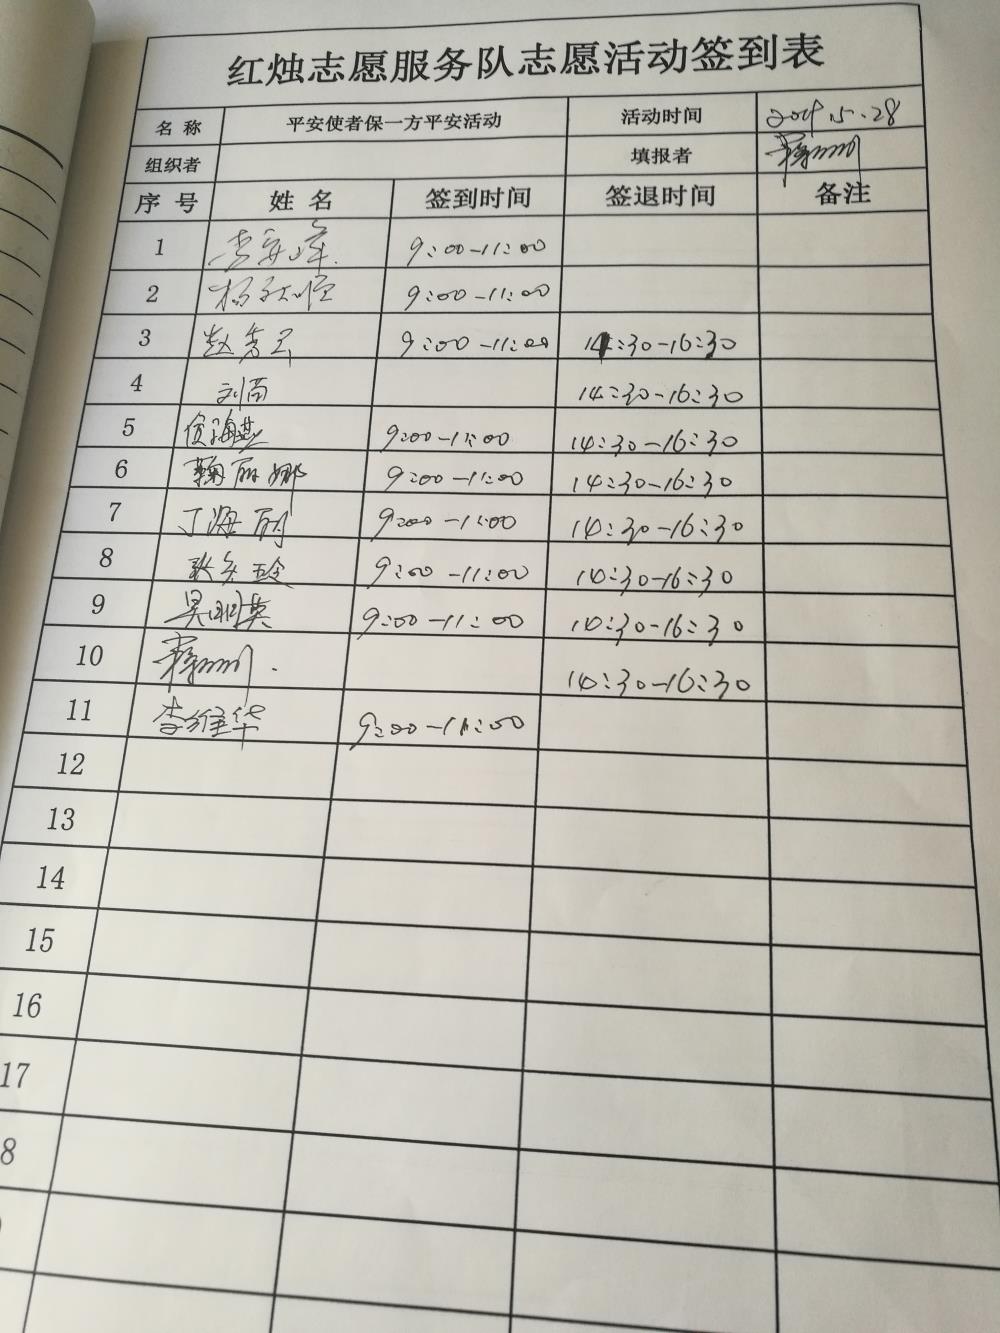 红烛志愿服务队志愿活动签到表
名称 平安使者保一方平安活动 活动时间 2019.5.28
组织者 填报者
序号 姓名 签到时间 签退时间 备注
1 9:00-11:00
2 9:00-11:00
3 赵秀云 9:00-11:00 14:30-16:30
4 刘苗 14:30-16:30
5 9:00-11:00 14:30-16:30
6 鞠丽娜 9:00-11:00 14:30-16:30
7 丁海丽 9:00-11:00 14:30-16:30
8 9:00-11:00 14:30-16:30
9 吴明英 9:00-11:00 14:30-16:30
10 14:30-16:30
11 李维华 9:00-11:00
12
13
14
15
16
17
8